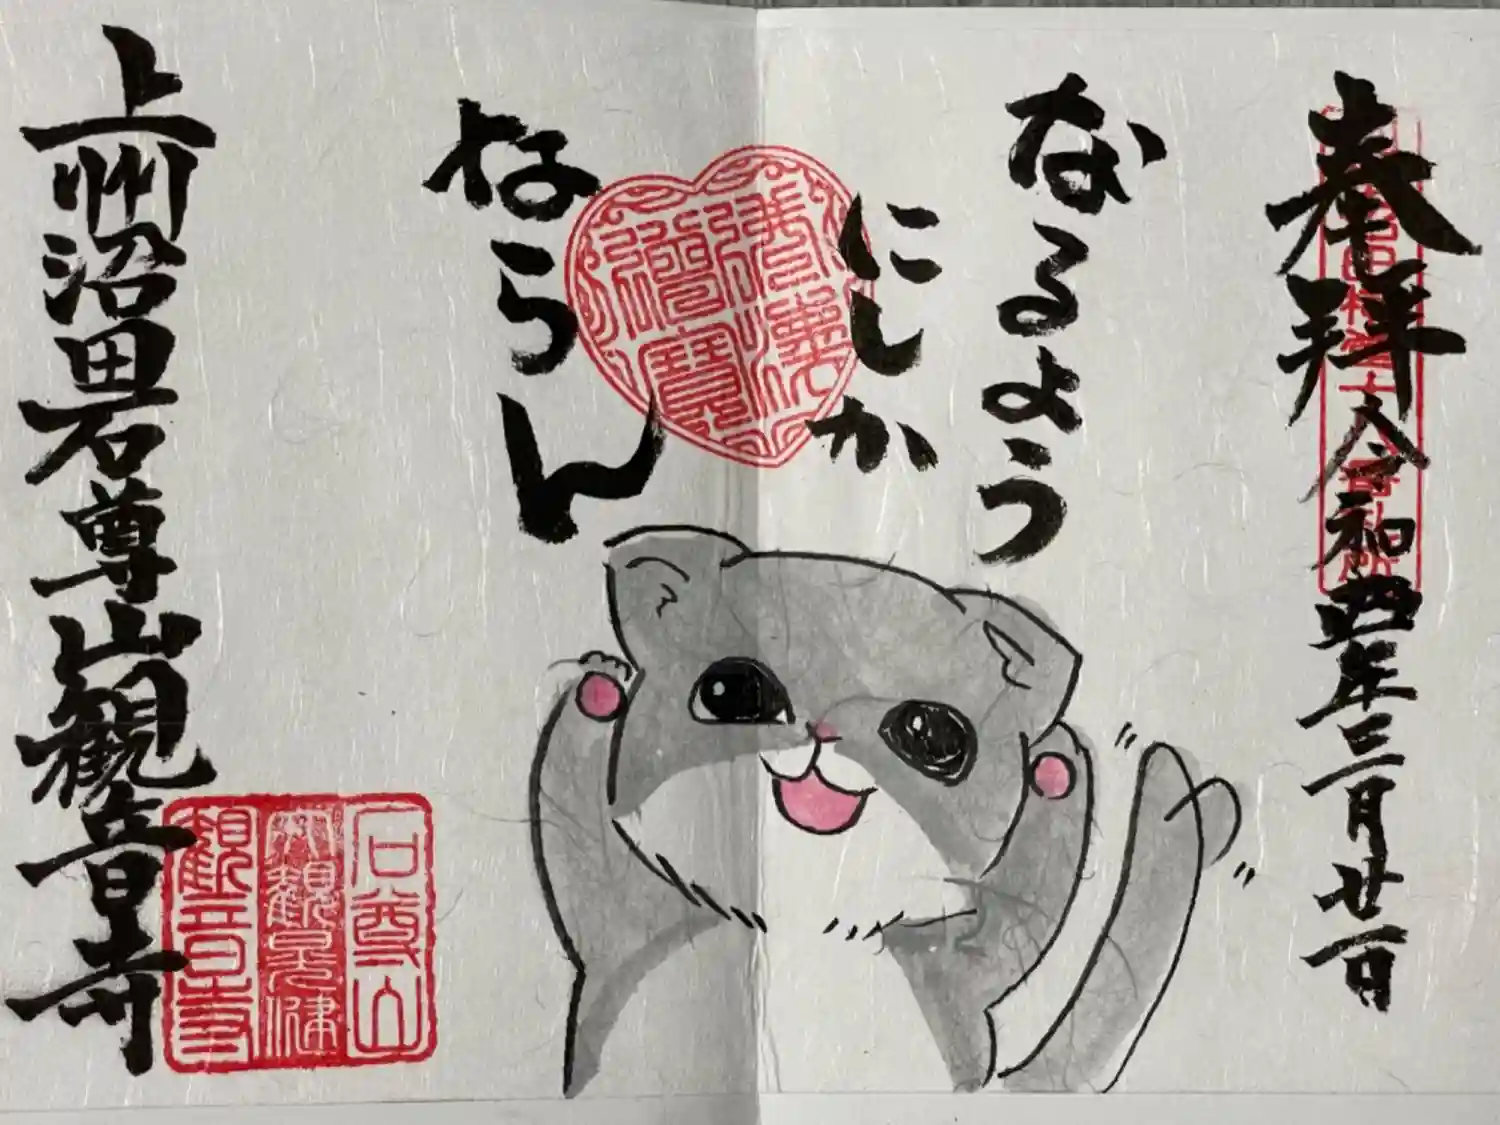 奉拝
令和四年三月廿一日
なるよう
にしか
ならん
上州沼田石尊山観音寺
石尊山
観音寺